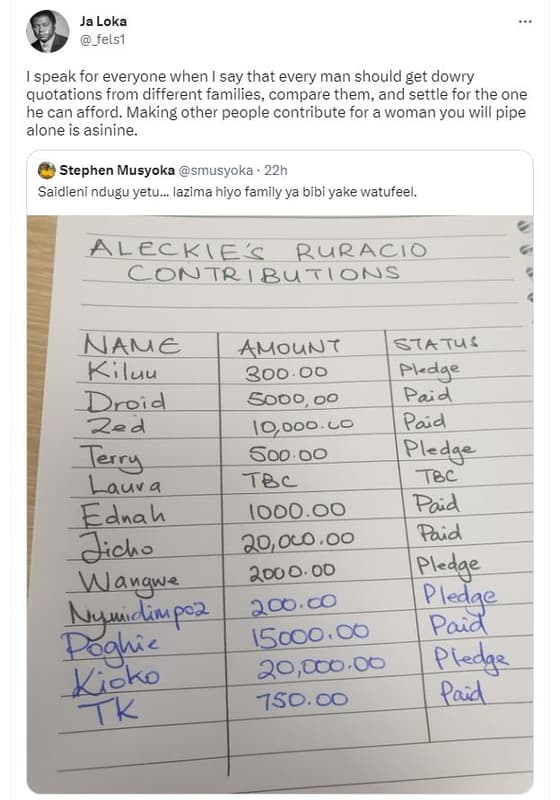 Ja Loka
@_fels1
I speak for everyone when I say that every man should get dowry
quotations from different families, compare them, and settle for the one
he can afford. Making other people contribute for a woman you will pipe
alone is asinine.
Stephen Musyoka @smusyoka · 22h
Saidieni ndugu yetu... lazima hiyo family ya bibi yake watufeel.
ALECKIE'S RURACIO
CONTRIBUTIONS
NAME AMOUNT STATUS
Kiluu 300.00 Pledge
Droid 5000,00 Paid
Zed 10,000.00 Paid
Terry 500.00 Pledge
Laura TBC TBC
Ednah 1000.00 Paid
Jicho 20,000.00 Paid
Wangwe 2000.00 Pledge
200.00 Pledge
Poghie 15000.00 Paid
Kioko 20,000.00 Pledge
TK 750.00 Paid